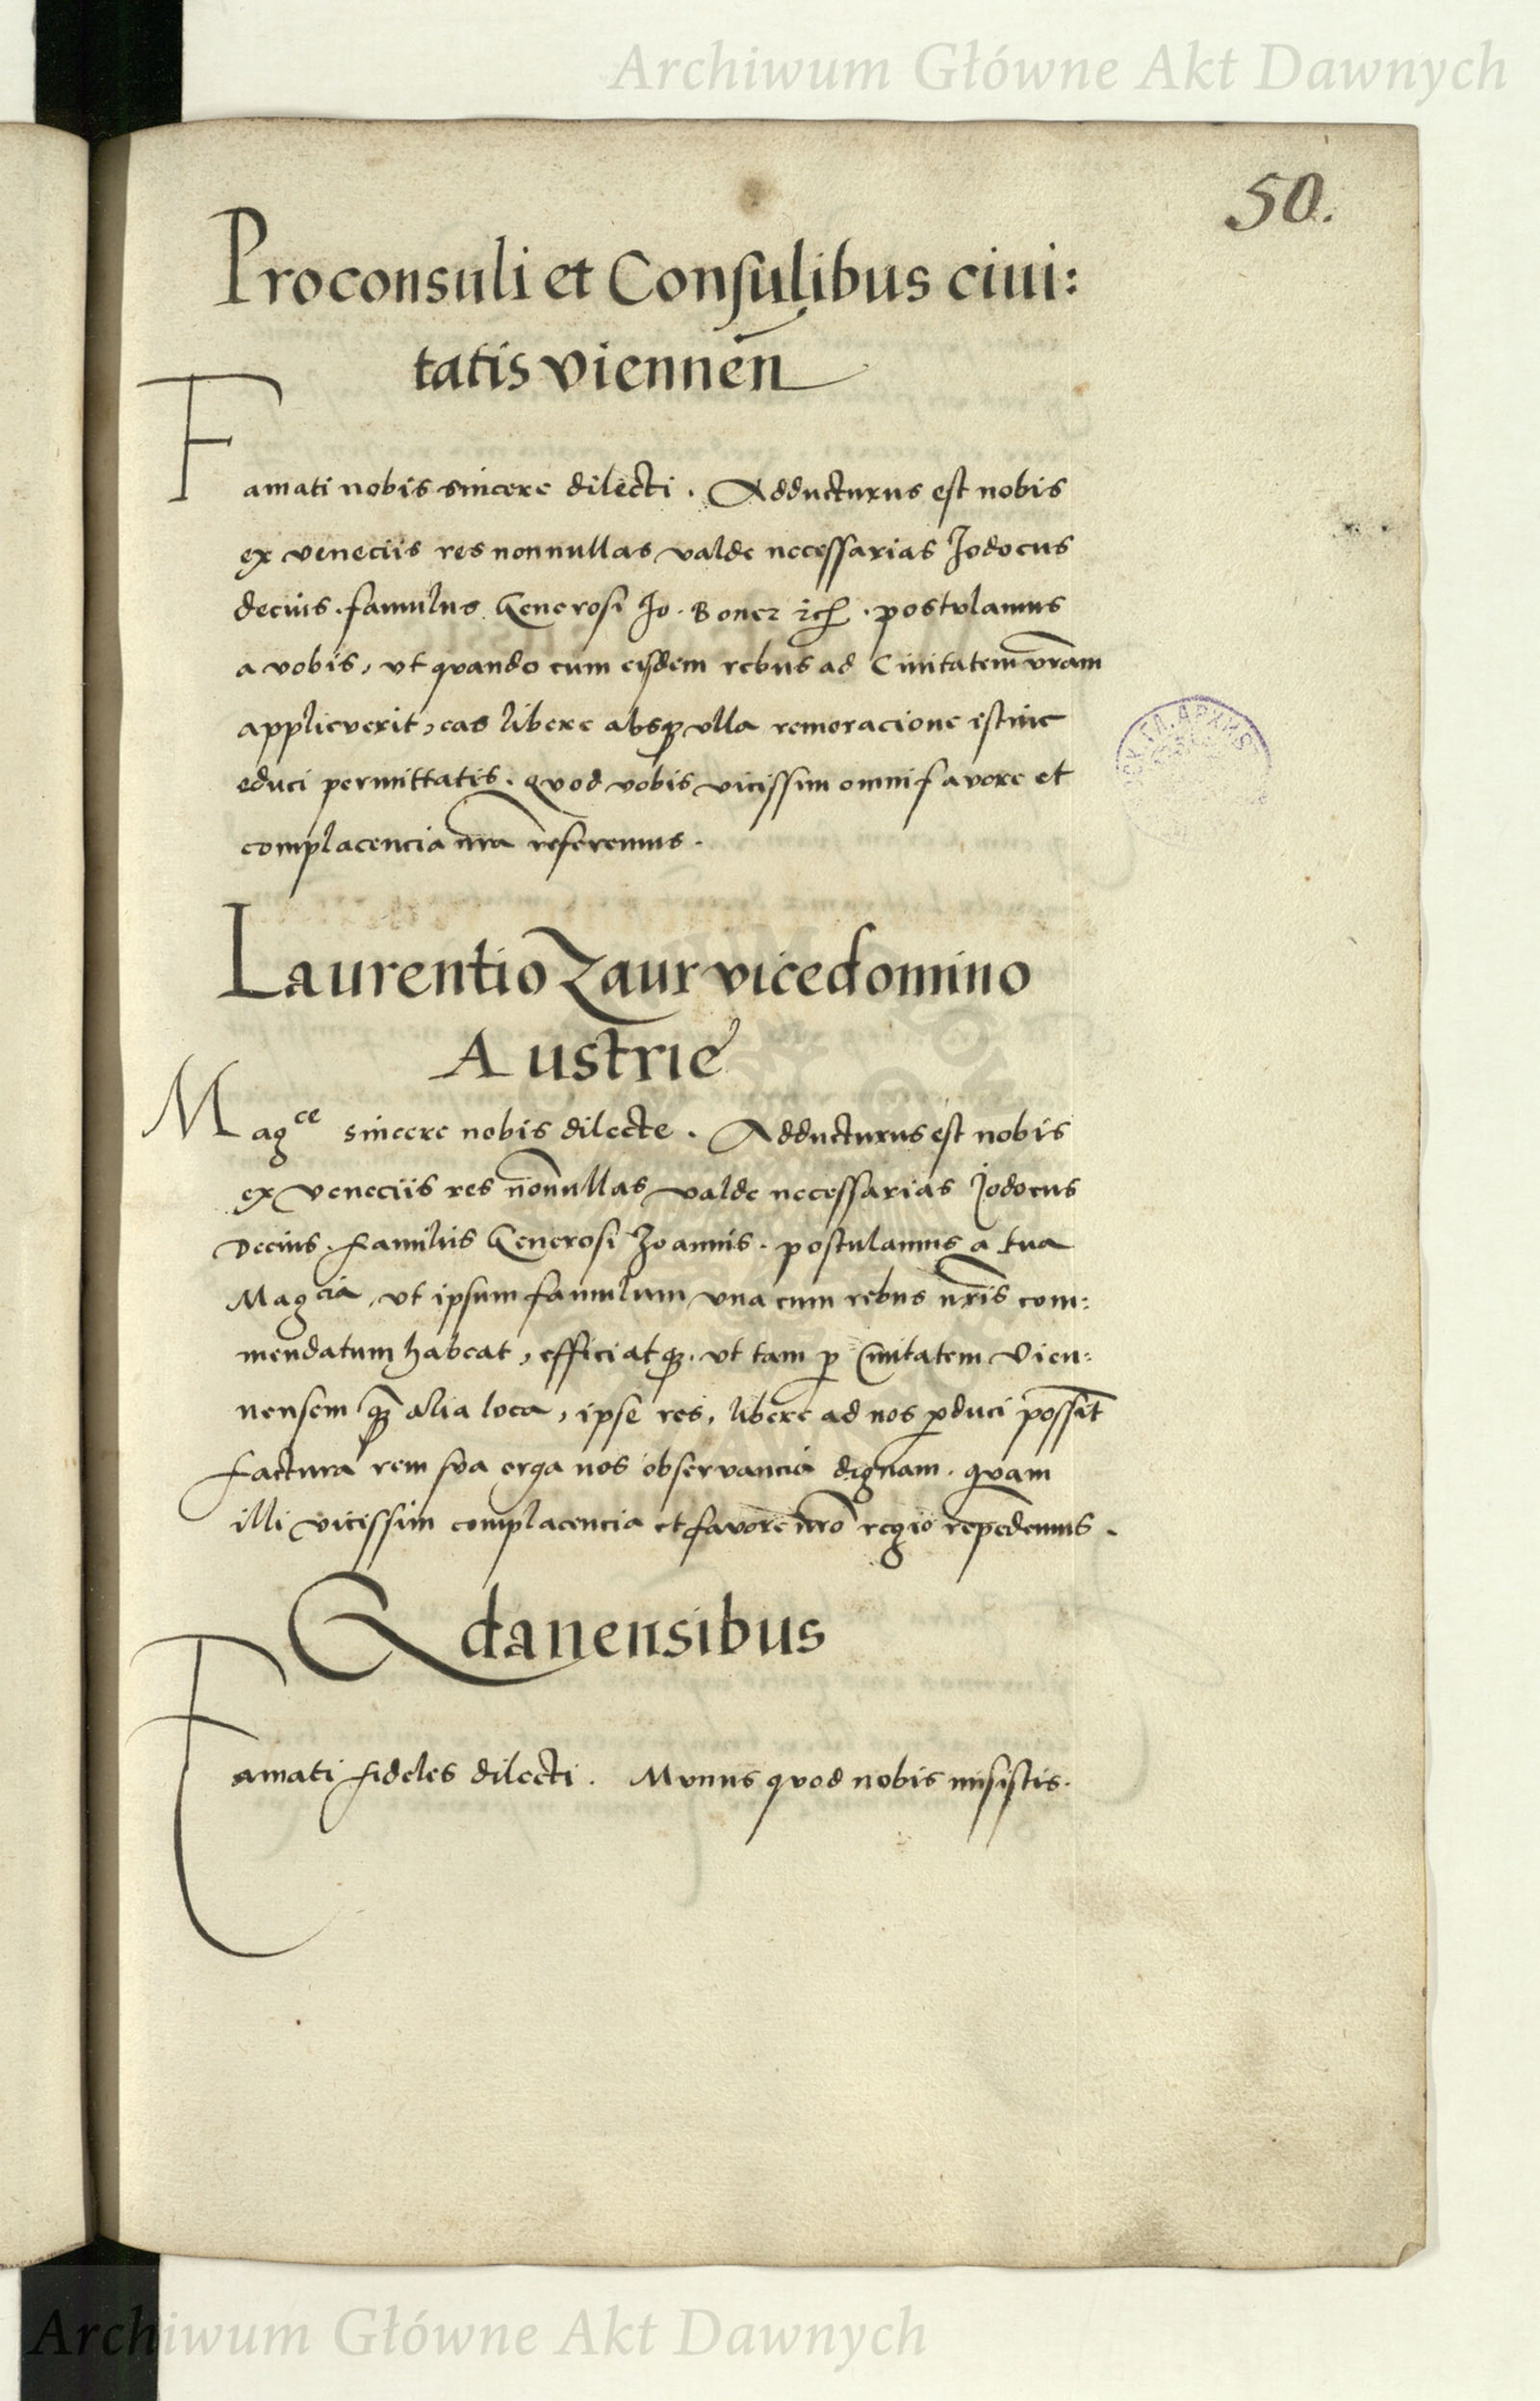 Archiwum Główne Akt Dawnych
50.
Proconsuli et Consulibus ciui:
tatis viennen̄
Famati nobis sincere dilecti. Adducturus est nobis
ex veneciis res nonnullas valde necessarias Jodocus
decius. famulus Generosi Jo. Boner postulamus
a vobis, vt quando cum eisdem rebus ad Ciuitatem vr̄am
applicverit, eas libere absqꝫ vlla remoracione istinc
educi permittatis. quod vobis vicissim omni favore et
complacencia nr̄a referemus.
Laurentio Zaur vicedomino
Austrie
Mag^ce sincere nobis dilecte. Adducturus est nobis
ex Veneciis res nōnnullas valde necessarias Jodocus
Decius. famulus Generosi Joannis. postulamus a tua
Mag^cia, vt ipsum famulum vna cum rebus nr̄is com:
mendatum habeat, efficiatqꝫ. vt tam ꝑ Ciuitatem Vien:
nensem qꝫ̄ alia loca, ipse res, libere ad nos ꝑduci possint̄
factura rem sva erga nos observancia dignam. quam
illi vicissim complacencia et favore nr̄o regio rependemus.
Gdanensibus
Famati fideles dilecti. Mvnus qvod nobis misistis.
Archiwum Główne Akt Dawnych